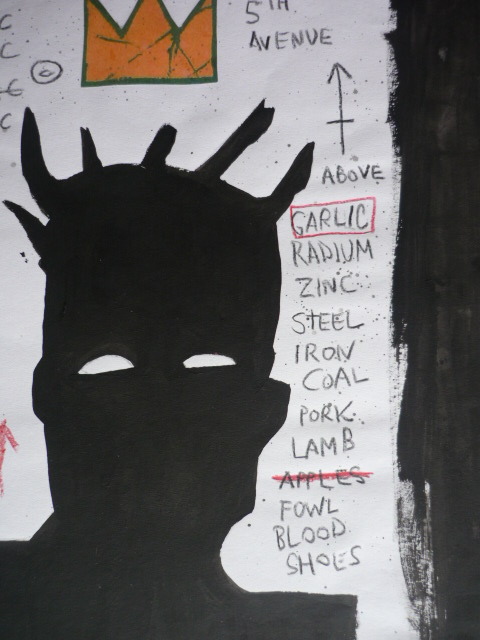 5TH
AVENUE
ABOVE
GARLIC
RADIUM
ZINC
STEEL
IRON
COAL
PORK
LAMB
APPLES
FOWL
BLOOD
SHOES